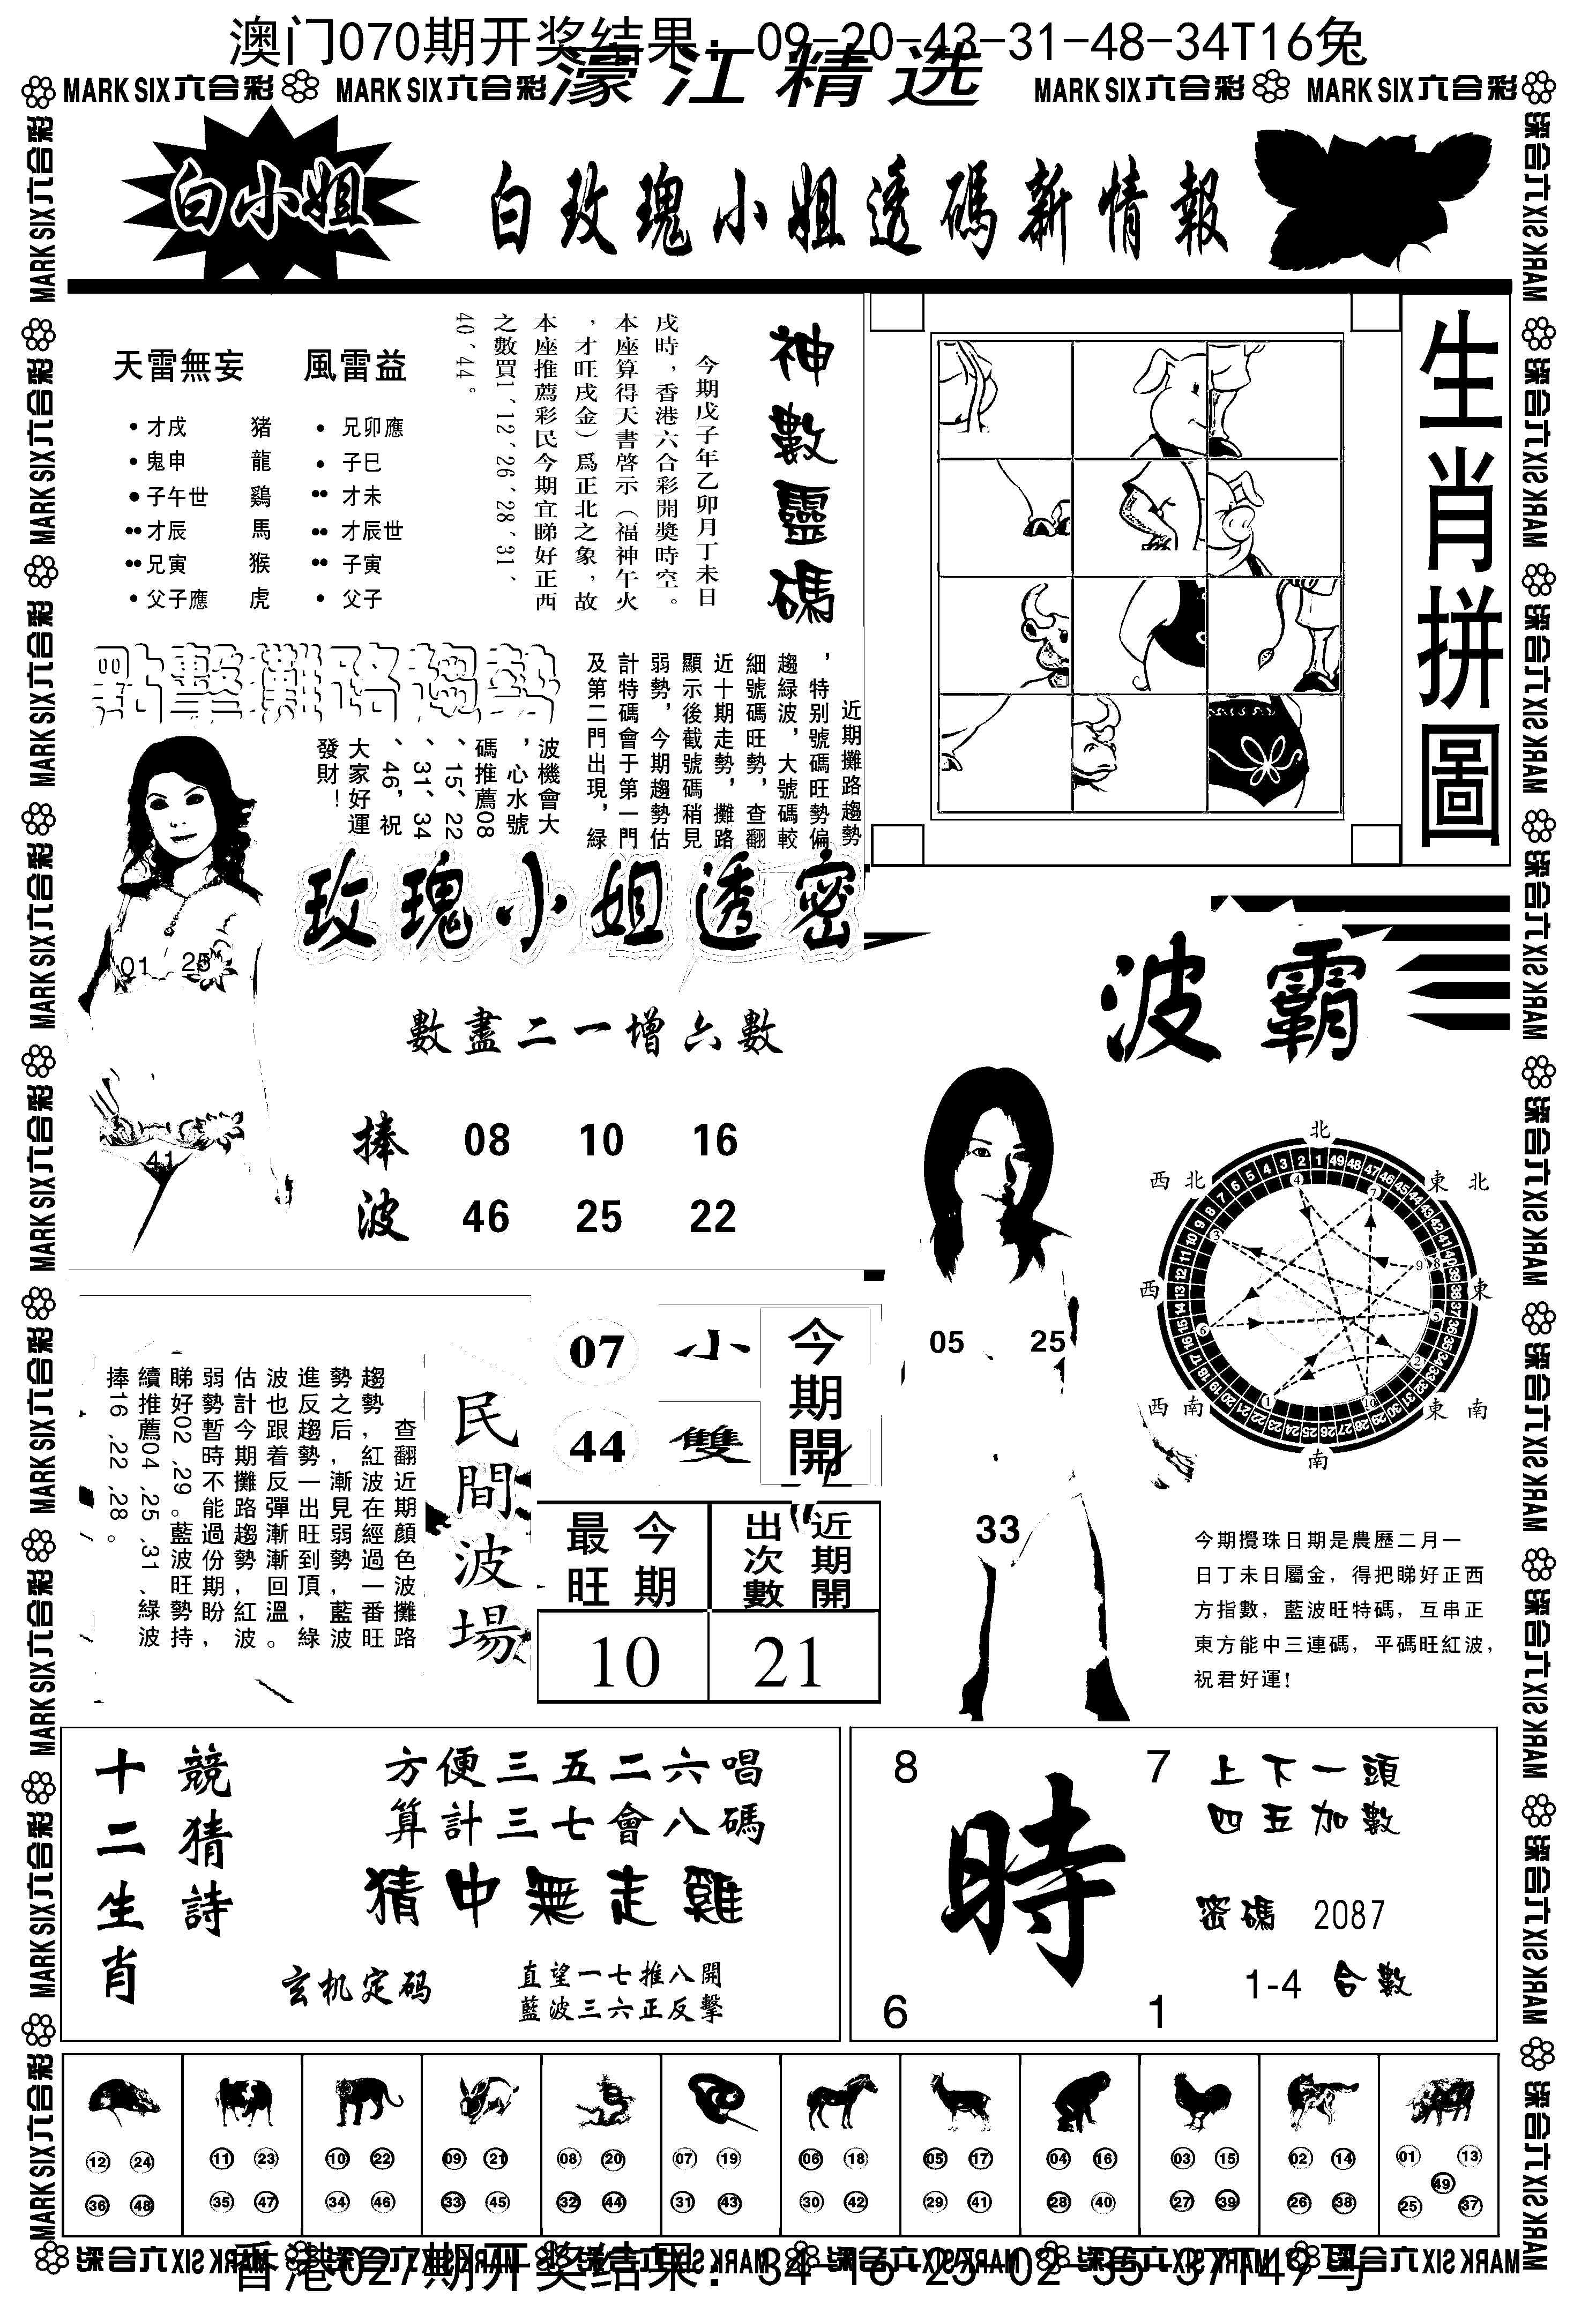 澳门070期开奖结果：09-20-43-31-48-34T16兔
MARK SIX六合彩 MARK SIX六合彩 濠江精选 MARK SIX六合彩 MARK SIX六合彩
白小姐
白玫瑰小姐透碼新情報
天雷無妄 風雷益
才戌 猪 兄卯應
鬼申 龍 子巳
子午世 鷄 才未
才辰 馬 才辰世
兄寅 猴 子寅
父子應 虎 父子
神數靈碼
今期戊子年乙卯月丁未日
戌時，香港六合彩開獎時空。
本座算得天書啓示（福神午火
，才旺戌金）爲正北之象，故
本座推薦彩民今期宜睇好正西
之數買1、12、26、28、31、
40、44。
生肖拼圖
點擊攤路趨勢
近期攤路趨勢
，特别號碼旺勢偏
趨緑波，大號碼較
細號碼旺勢，查翻
近十期走勢，攤路
顯示後截號碼稍見
弱勢，今期趨勢估
計特碼會于第一門
及第二門出現，緑
波機會大
，心水號
碼推薦08
、15、22
、31、34
、46，祝
大家好運
發財！
玫瑰小姐透密
01 25
41
數盡二一增六數
捧 08 10 16
波 46 25 22
波霸
05 25
33
北
西北 東北
西 東
西南 東南
南
今期攪珠日期是農歷二月一
日丁未日屬金，得把睇好正西
方指數，藍波旺特碼，互串正
東方能中三連碼，平碼旺紅波，
祝君好運！
民間波場
查翻近期顔色波攤路
趨勢，紅波在經過一番旺
勢之后，漸見弱勢，藍波
進反趨勢一出旺到頂，綠
波也跟着反彈漸漸回溫。
估計今期攤路趨勢，紅波
弱勢暫時不能過份期盼，
睇好02，29。藍波旺勢持
續推薦04，25，31、綠波
捧16，22，28。
今期開
07 小
44 雙
最旺 今期 出次數 近期開
10 21
十二生肖
競猜詩
方便三五二六唱
算計三七會八碼
猜中無走雞
玄机定码
直望一七推八開
藍波三六正反擊
8 7
時
6 1
上下一頭
四五加數
密碼 2087
1-4 合數
12 24 11 23 10 22 09 21 08 20 07 19 06 18 05 17 04 16 03 15 02 14 01 13
49
36 48 35 47 34 46 33 45 32 44 31 43 30 42 29 41 28 40 27 39 26 38 25 37
香港027期开奖结果：34-16-25-02-35-37T49马